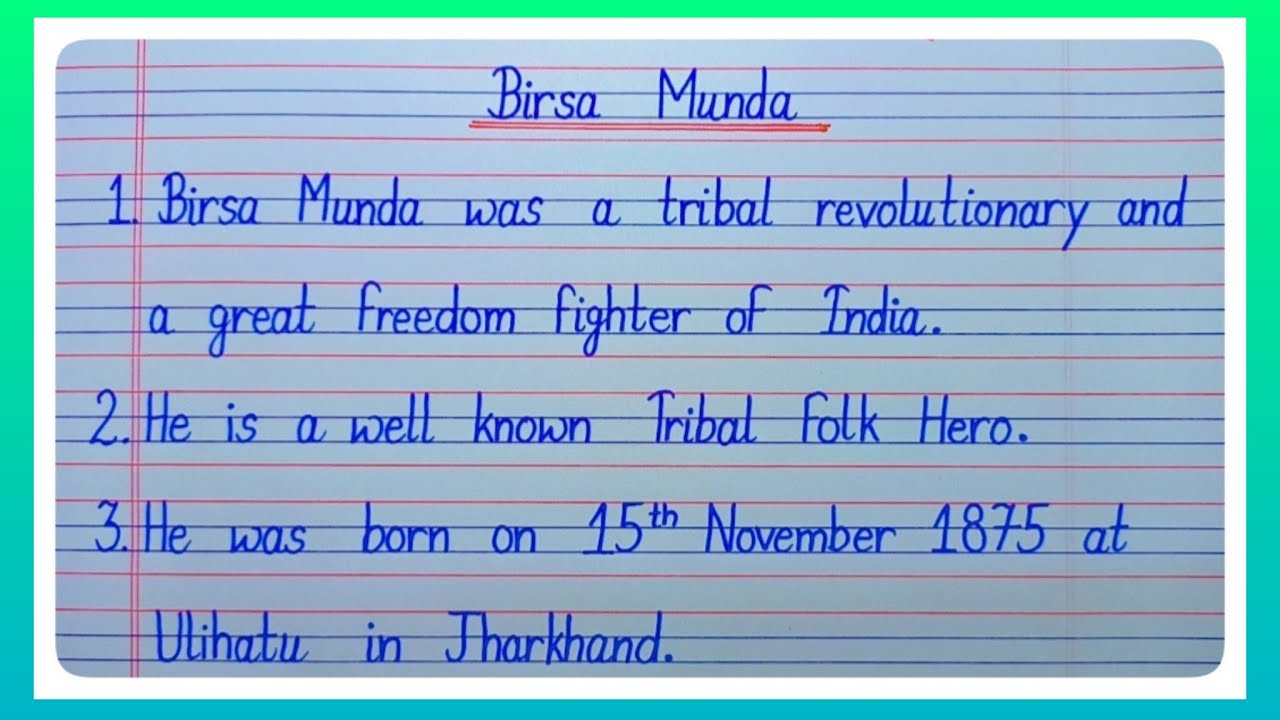 Birsa Munda
1. Birsa Munda was a tribal revolutionary and
a great freedom fighter of India.
2. He is a well known Tribal Folk Hero.
3. He was born on 15th November 1875 at
Ulihatu in Jharkhand.